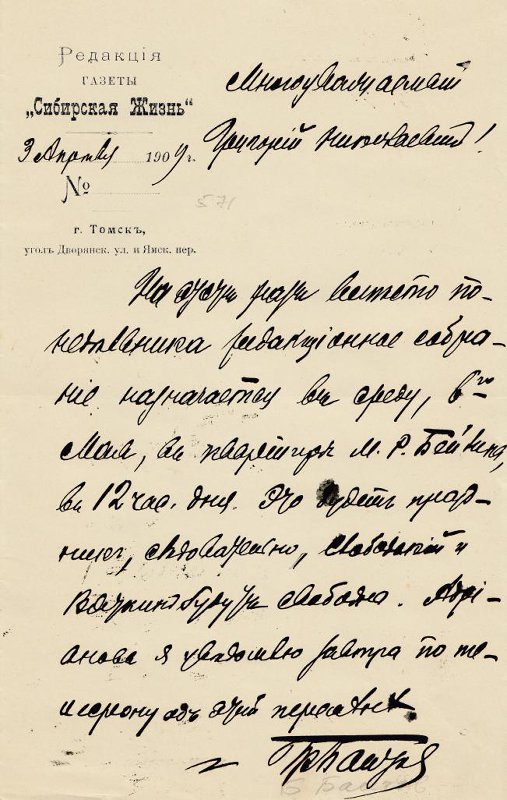 Редакція
ГАЗЕТЫ
„Сибирская Жизнь“
3 Апрѣля 1909 г.
№
571
г. Томскъ,
уголъ Дворянск. ул. и Ямск. пер.
Многоуважаемый
Григорій Николаевич!
На этотъ разъ вмѣсто по-
недѣльника редакціонное собра-
ніе назначается въ среду, 6го
Мая, въ квартирѣ М. Р. Бейлина,
въ 12 час. дня. Это будетъ празд-
никъ, слѣдовательно, и
будутъ свободны. Адрі-
анова я увѣдомлю завтра по те-
лефону объ этой